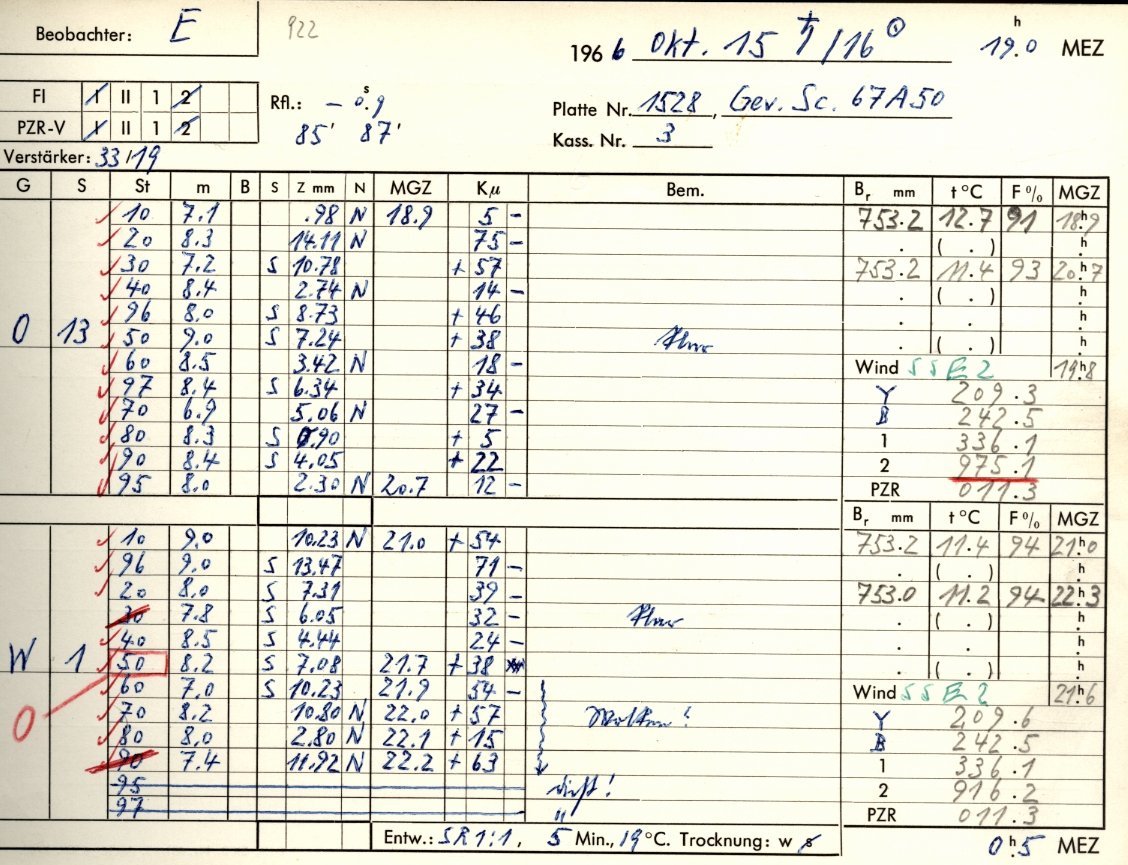 Beobachter: E 922
1966 Okt. 15 ♄/16 ☉ 19.0 h MEZ
FI I II 1 2
PZR-V I II 1 2
Rfl.: – 0.9 s
85' 87'
Platte Nr. 1528, Gev. Sc. 67A50
Kass. Nr. 3
Verstärker: 33/19
G S St m B S Z mm N MGZ Kμ Bem.
O 13
10 7.1 .98 N 18.9 5 –
20 8.3 14.11 N 75 –
30 7.2 S 10.78 + 57
40 8.4 2.74 N 14 –
96 8.0 S 8.73 + 46
50 9.0 S 7.24 + 38
60 8.5 3.42 N 18 –
97 8.4 S 6.34 + 34
70 6.9 5.06 N 27 –
80 8.3 S 0.90 + 5
90 8.4 S 4.05 + 22
95 8.0 2.30 N 20.7 12 –
W 1
10 9.0 10.23 N 21.0 + 54
96 9.0 S 13.47 71 –
20 8.0 S 7.31 39 –
30 7.8 S 6.05 32 –
40 8.5 S 4.44 24 –
50 8.2 S 7.08 21.7 + 38
60 7.0 S 10.23 21.9 54 –
70 8.2 10.80 N 22.0 + 57 Wolken!
80 8.0 2.80 N 22.1 + 15
90 7.4 11.92 N 22.2 + 63
95 dicht!
97 "
O
Entw.: SR 1:1, 5 Min., 19 °C. Trocknung: w s
Br mm t °C F % MGZ
753.2 12.7 91 18h.9
. ( . ) h.
753.2 11.4 93 20h.7
. ( . ) h.
. . h.
. ( . ) h.
Wind SSE 2 19h8
Y 209.3
B 242.5
1 336.1
2 975.1
PZR 011.3
Br mm t °C F % MGZ
753.2 11.4 94 21h0
. ( . ) h.
753.0 11.2 94 22h3
. ( . ) h.
. . h.
. ( . ) h.
Wind SSE 2 21h6
Y 209.6
B 242.5
1 336.1
2 916.2
PZR 011.3
0h.5 MEZ